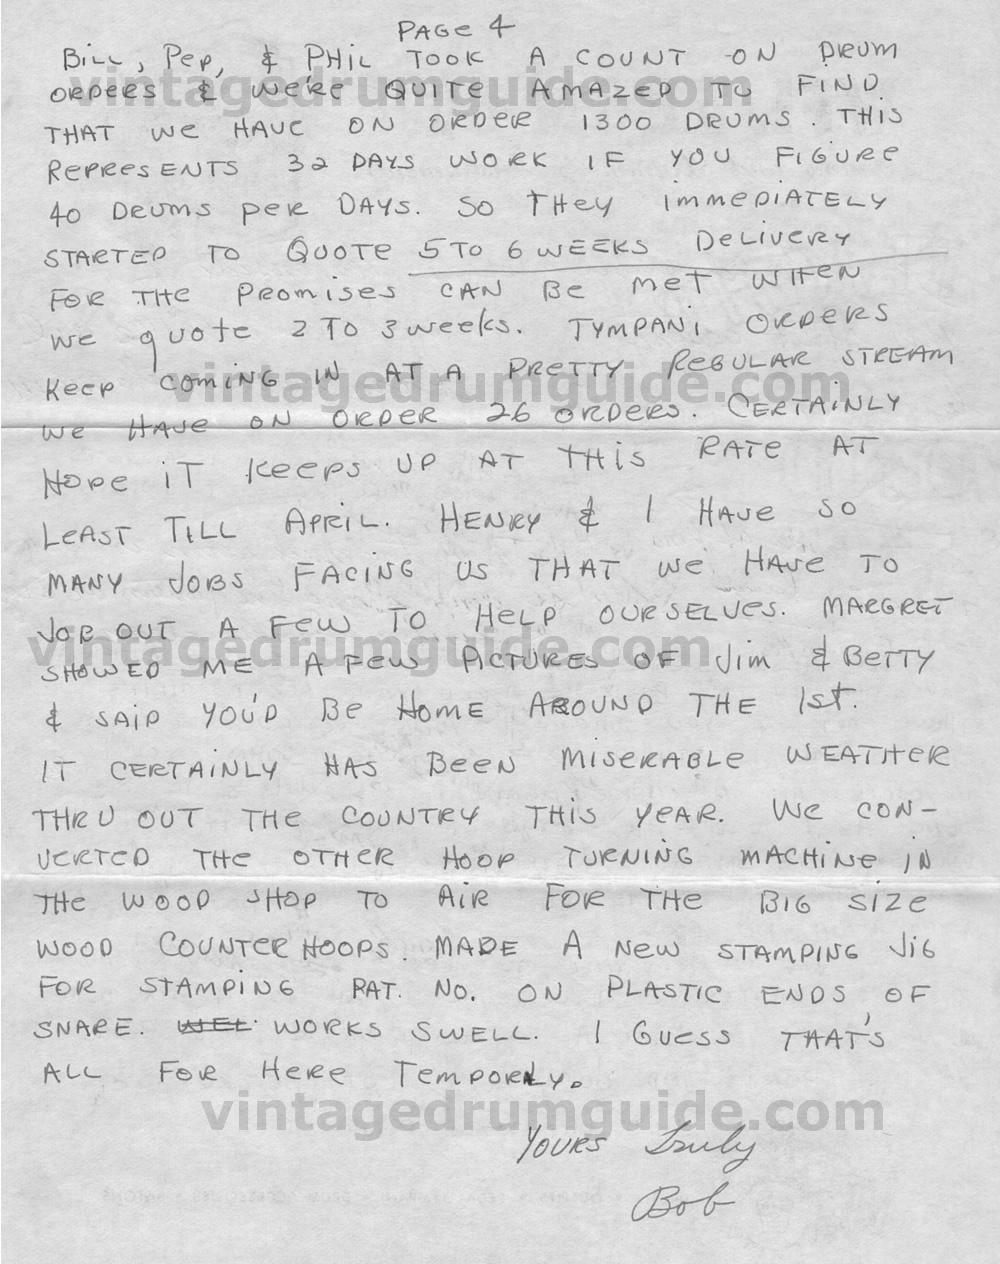 PAGE 4
BILL, PEP, & PHIL TOOK A COUNT ON DRUM
ORDERS & WE'RE QUITE AMAZED TO FIND
THAT WE HAVE ON ORDER 1300 DRUMS. THIS
REPRESENTS 32 DAYS WORK IF YOU FIGURE
40 DRUMS PER DAYS. SO THEY IMMEDIATELY
STARTED TO QUOTE 5 TO 6 WEEKS DELIVERY
FOR THE PROMISES CAN BE MET WHEN
WE QUOTE 2 TO 3 WEEKS. TYMPANI ORDERS
KEEP COMING IN AT A PRETTY REGULAR STREAM
WE HAVE ON ORDER 26 ORDERS. CERTAINLY
HOPE IT KEEPS UP AT THIS RATE AT
LEAST TILL APRIL. HENRY & I HAVE SO
MANY JOBS FACING US THAT WE HAVE TO
JOB OUT A FEW TO HELP OURSELVES. MARGRET
SHOWED ME A FEW PICTURES OF JIM & BETTY
& SAID YOU'D BE HOME AROUND THE 1st.
IT CERTAINLY HAS BEEN MISERABLE WEATHER
THRU OUT THE COUNTRY THIS YEAR. WE CON-
VERTED THE OTHER HOOP TURNING MACHINE IN
THE WOOD SHOP TO AIR FOR THE BIG SIZE
WOOD COUNTER HOOPS. MADE A NEW STAMPING JIG
FOR STAMPING PAT. NO. ON PLASTIC ENDS OF
SNARE. WEL WORKS SWELL. I GUESS THAT'S
ALL FOR HERE TEMPORLY.
YOURS Truly
Bob
vintagedrumguide.com
vintagedrumguide.com
vintagedrumguide.com
vintagedrumguide.com